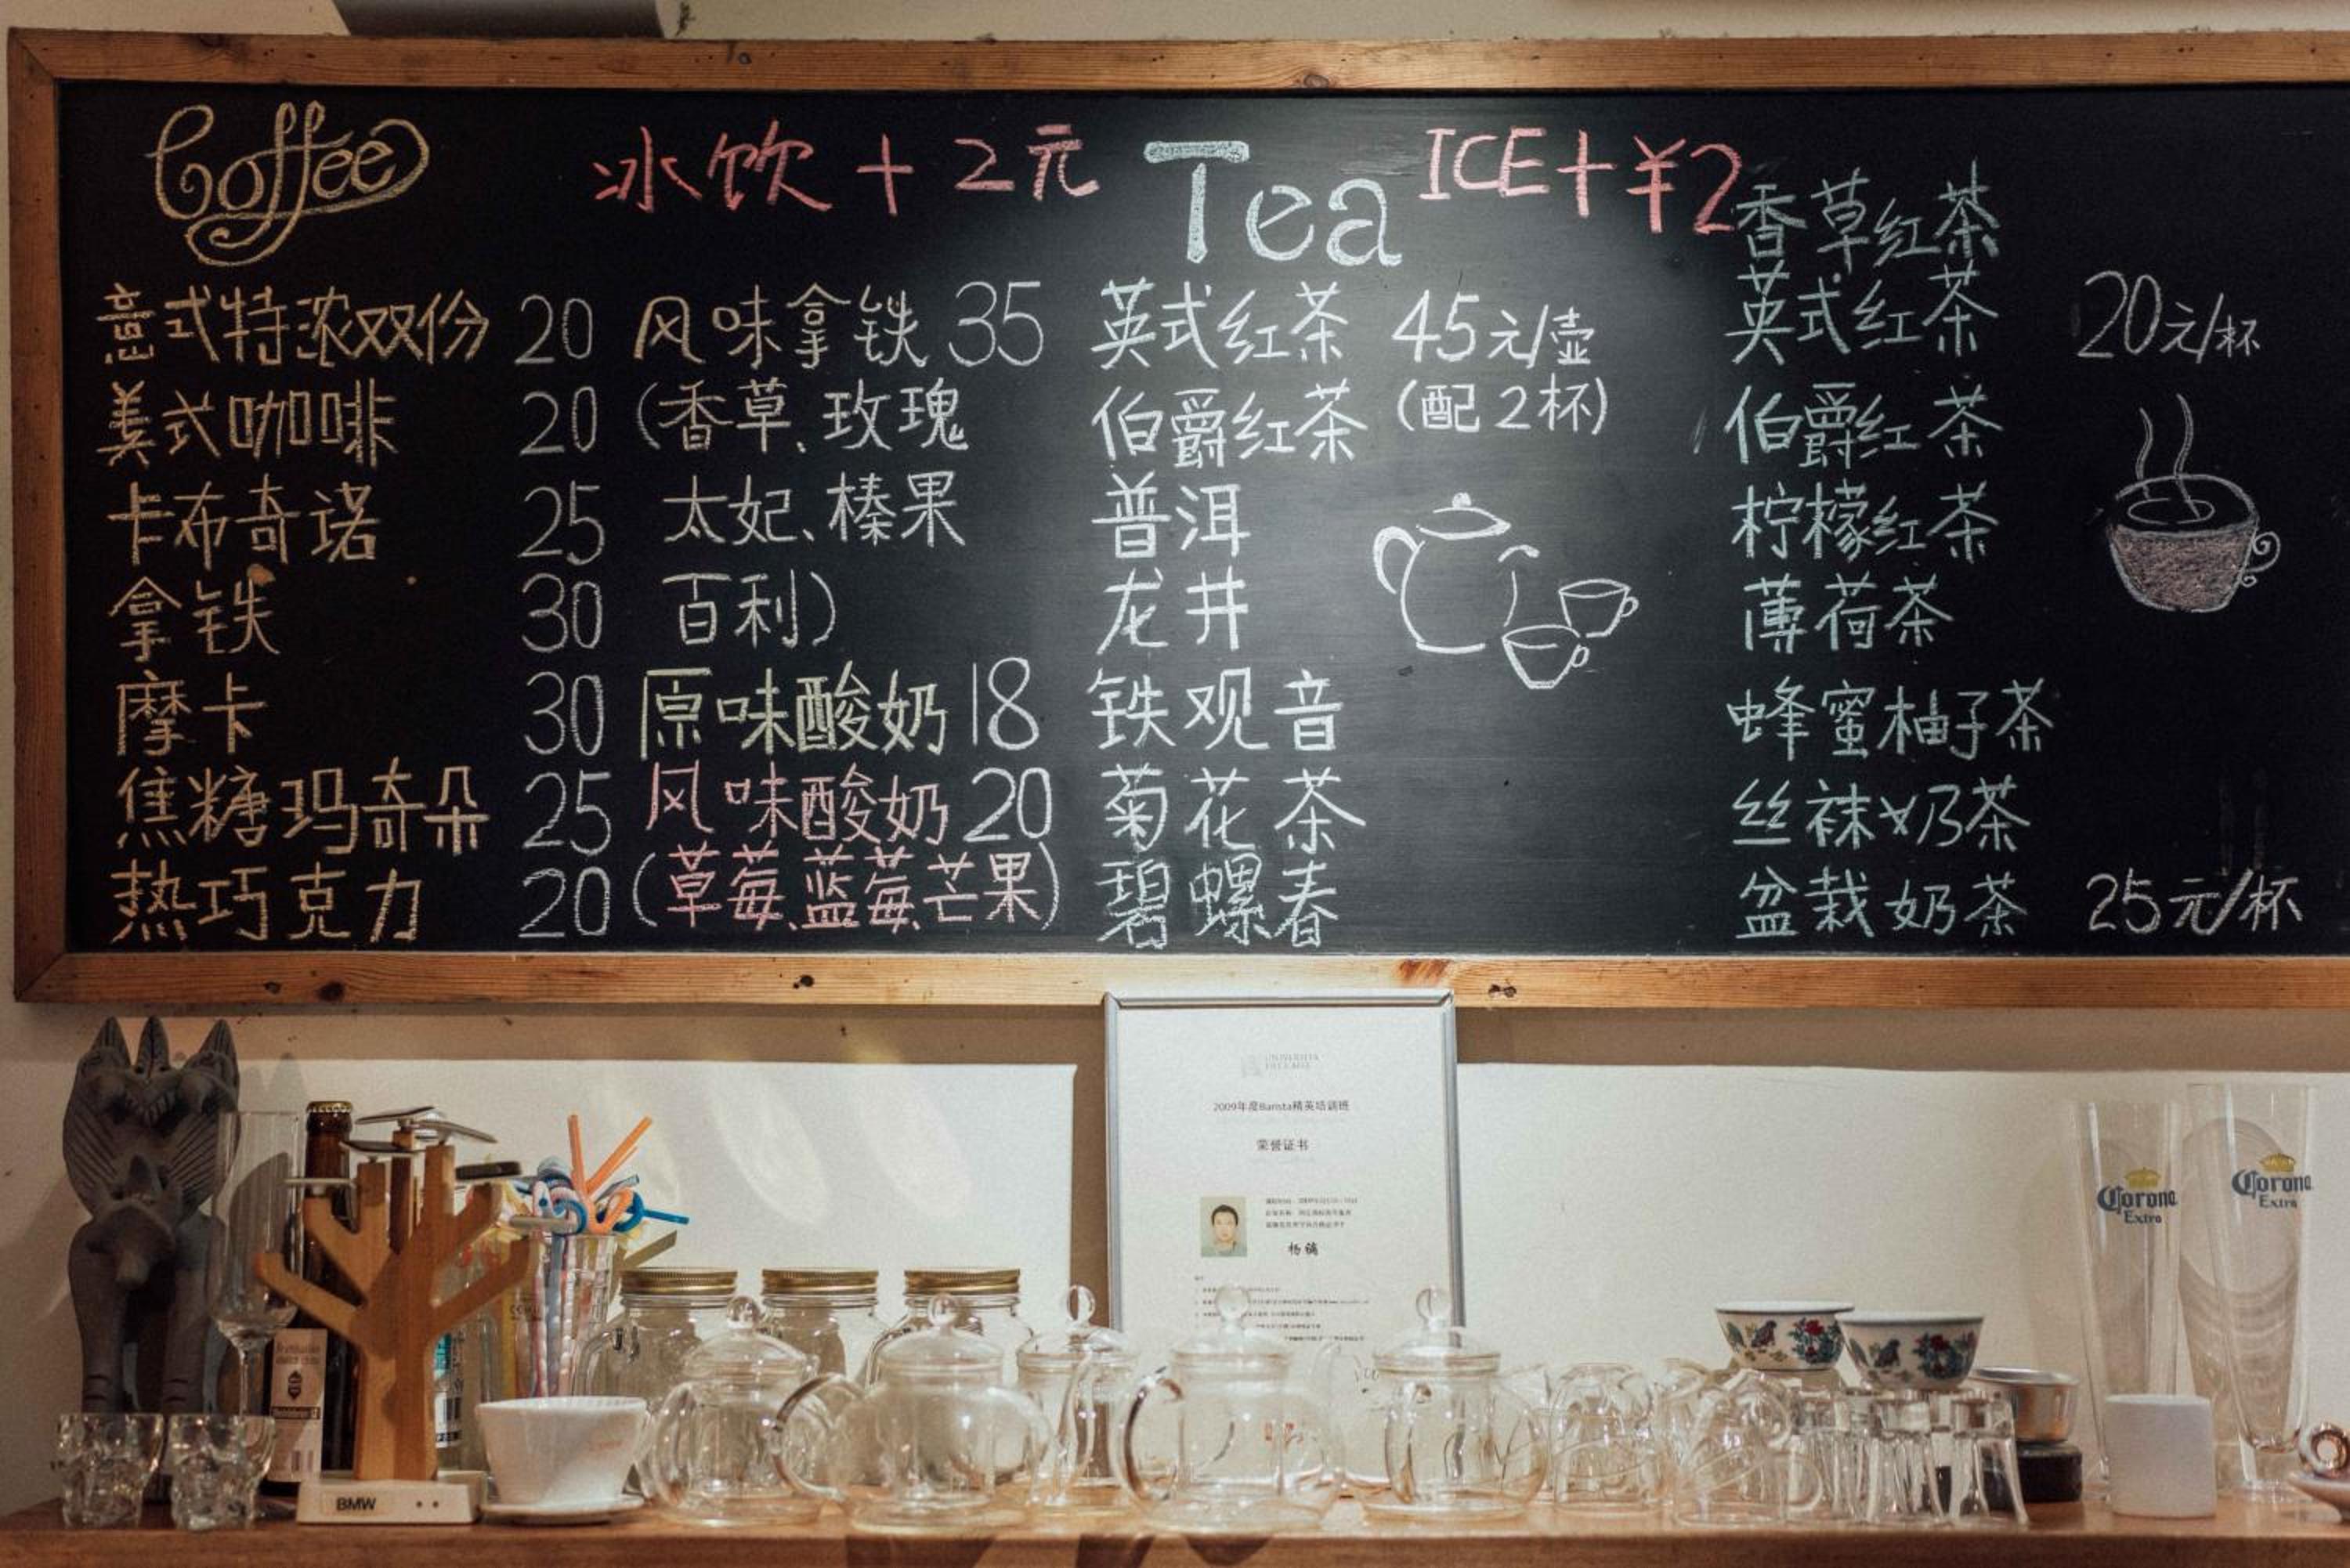 Coffee
冰饮+2元
Tea
ICE+¥2
意式特浓双份 20
美式咖啡 20
卡布奇诺 25
拿铁 30
摩卡 30
焦糖玛奇朵 25
热巧克力 20
风味拿铁 35
(香草、玫瑰
太妃、榛果
百利)
原味酸奶 18
风味酸奶 20
(草莓、蓝莓、芒果)
英式红茶 45元/壶
伯爵红茶 (配2杯)
普洱
龙井
铁观音
菊花茶
碧螺春
香草红茶
英式红茶 20元/杯
伯爵红茶
柠檬红茶
薄荷茶
蜂蜜柚子茶
丝袜奶茶
盆栽奶茶 25元/杯
2009年度Barista精英培训班
荣誉证书
Corona
Extra
Corona
Extra
BMW